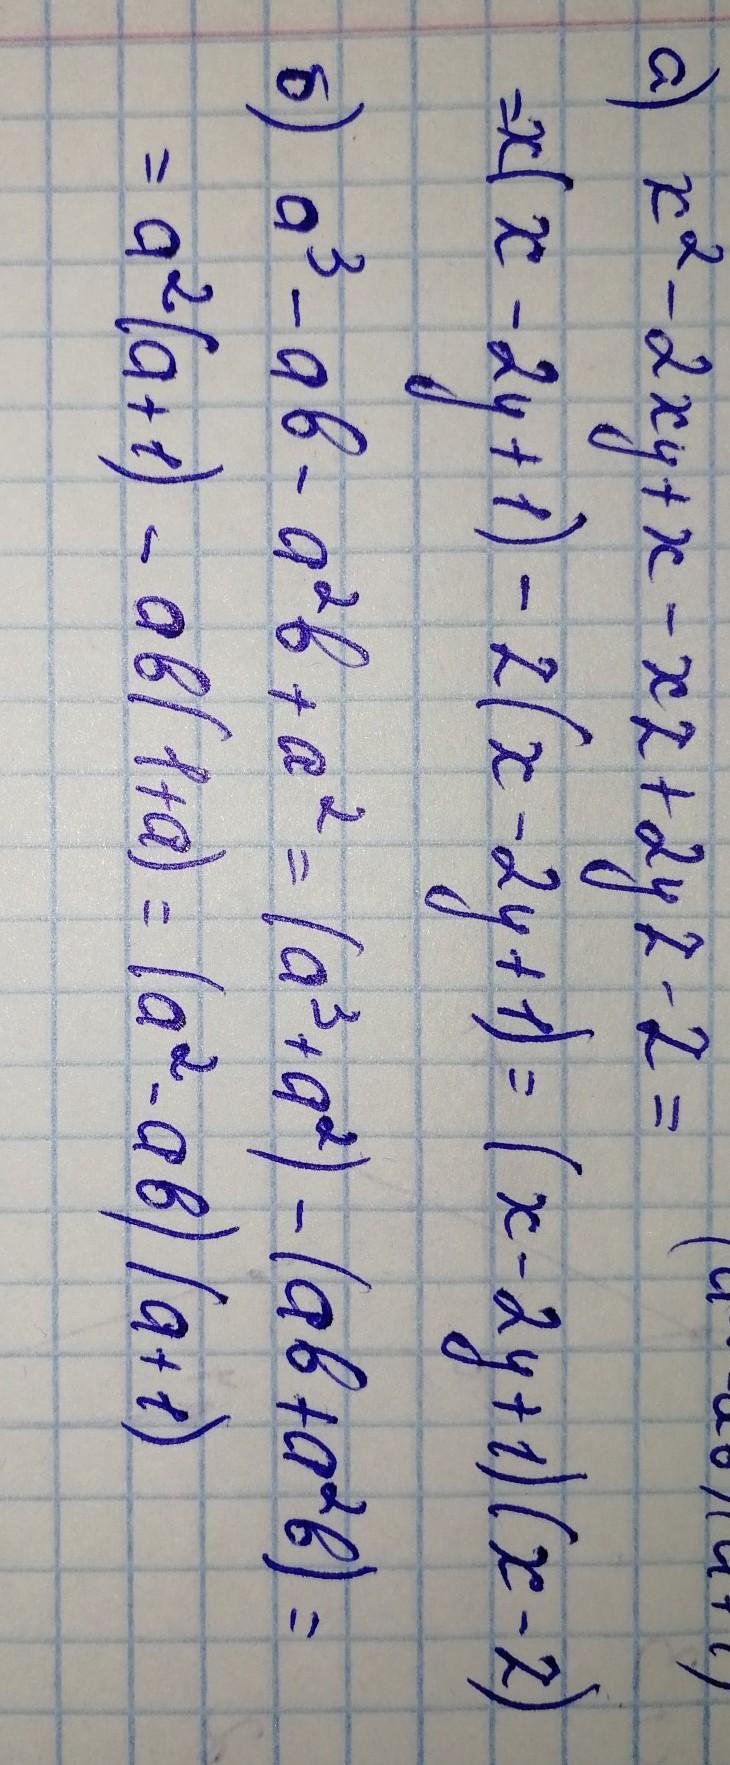 а) x² - 2xy + x - xz + 2yz - z =
= x(x - 2y + 1) - z(x - 2y + 1) = (x - 2y + 1)(x - z)
б) a³ - ab - a²b + a² = (a³ + a²) - (ab + a²b) =
= a²(a + 1) - ab(1 + a) = (a² - ab)(a + 1)